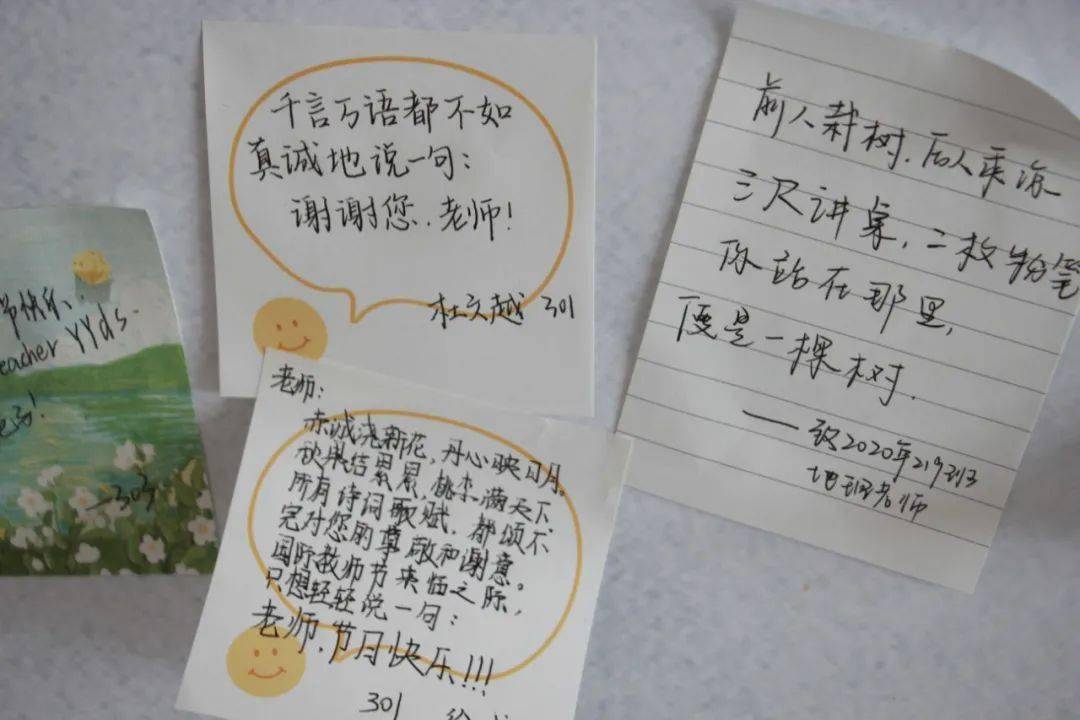 节快乐、
eacher YYds.
303
千言万语都不如
真诚地说一句：
谢谢您、老师！
杜文越 301
老师：
赤诚浇新花，丹心映日月。
秋果结累累，桃李满天下
所有诗词歌赋，都颂不
完对您的尊敬和谢意。
国际教师节来临之际，
只想轻轻说一句：
老师、节日快乐!!!
301
前人栽树、后人乘凉
三尺讲桌、二枚粉笔
你站在那里，
便是一棵树.
——致2020年219班
地理老师